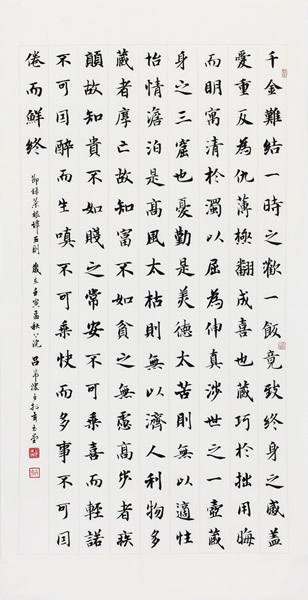 千金難結一時之歡一飯竟致終身之感蓋
愛重反為仇薄極翻成喜也藏巧於拙用晦
而明寓清於濁以屈為伸真涉世之一壺藏
身之三窟也憂勤是美德太苦則無以適性
怡情澹泊是高風太枯則無以濟人利物多
藏者厚亡故知富不如貧之無慮高步者疾
顛故知貴不如賤之常安不可乘喜而輕諾
不可因醉而生嗔不可乘快而多事不可因
倦而鮮終
節錄菜根譚五則 歲在壬寅孟秋 呂